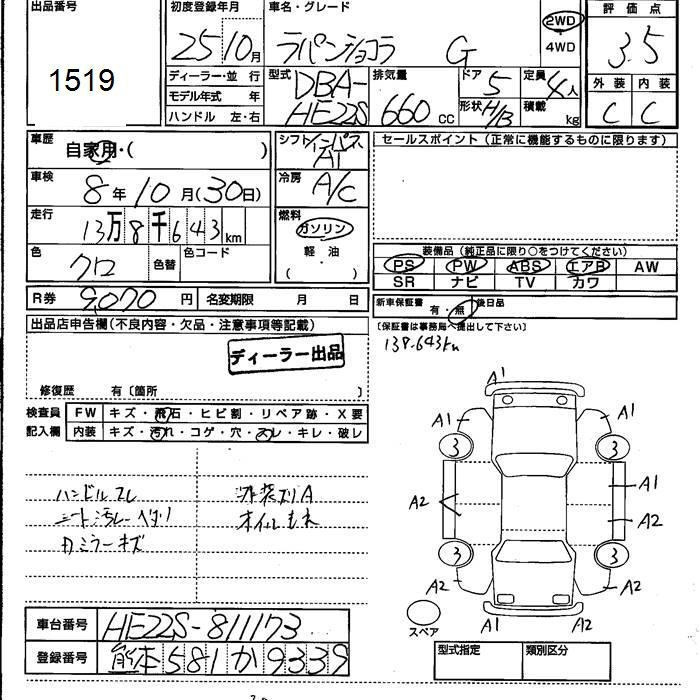 出品番号 初度登録年月 車名・グレード 評価点
1519 25年10月 ラパンショコラ G 2WD・4WD 3.5
ディーラー・並行 型式 DBA-HE22S 排気量 660cc ドア 5 定員 4人
モデル年式 年 形状 H/B 積載 kg 外装 内装
ハンドル 左・右 C C
車歴 自家用・( ) シフト AT セールスポイント(正常に機能するものに限ります)
車検 8年10月(30日) 冷房 A/C
走行 13万8千643km 燃料 ガソリン
軽油
( ・ )
色 クロ 色替 色コード 装備品(純正品に限り○をつけてください)
PS PW ABS エアB AW
SR ナビ TV カワ
R券 9,070円 名変期限 月 日 新車保証書 有・無 後日品
出品店申告欄(不良内容・欠品・注意事項等記載) 〔保証書は事務局へ提出して下さい〕
138.643km
ディーラー出品
修復歴 有〔箇所 〕
検査員 FW キズ・飛石・ヒビ割・リペア跡・X要
記入欄 内装 キズ・汚れ・コゲ・穴・スレ・キレ・破レ
A1
A1 A1
3 3
ハンドルスレ 外装ズリA A2 A1
シート汚レ ヘタリ オイルもれ A2
カミラーキズ
3 3
A2 A2
A1 A2
スペア
車台番号 HE22S-811173
登録番号 熊本581か9339 型式指定 類別区分